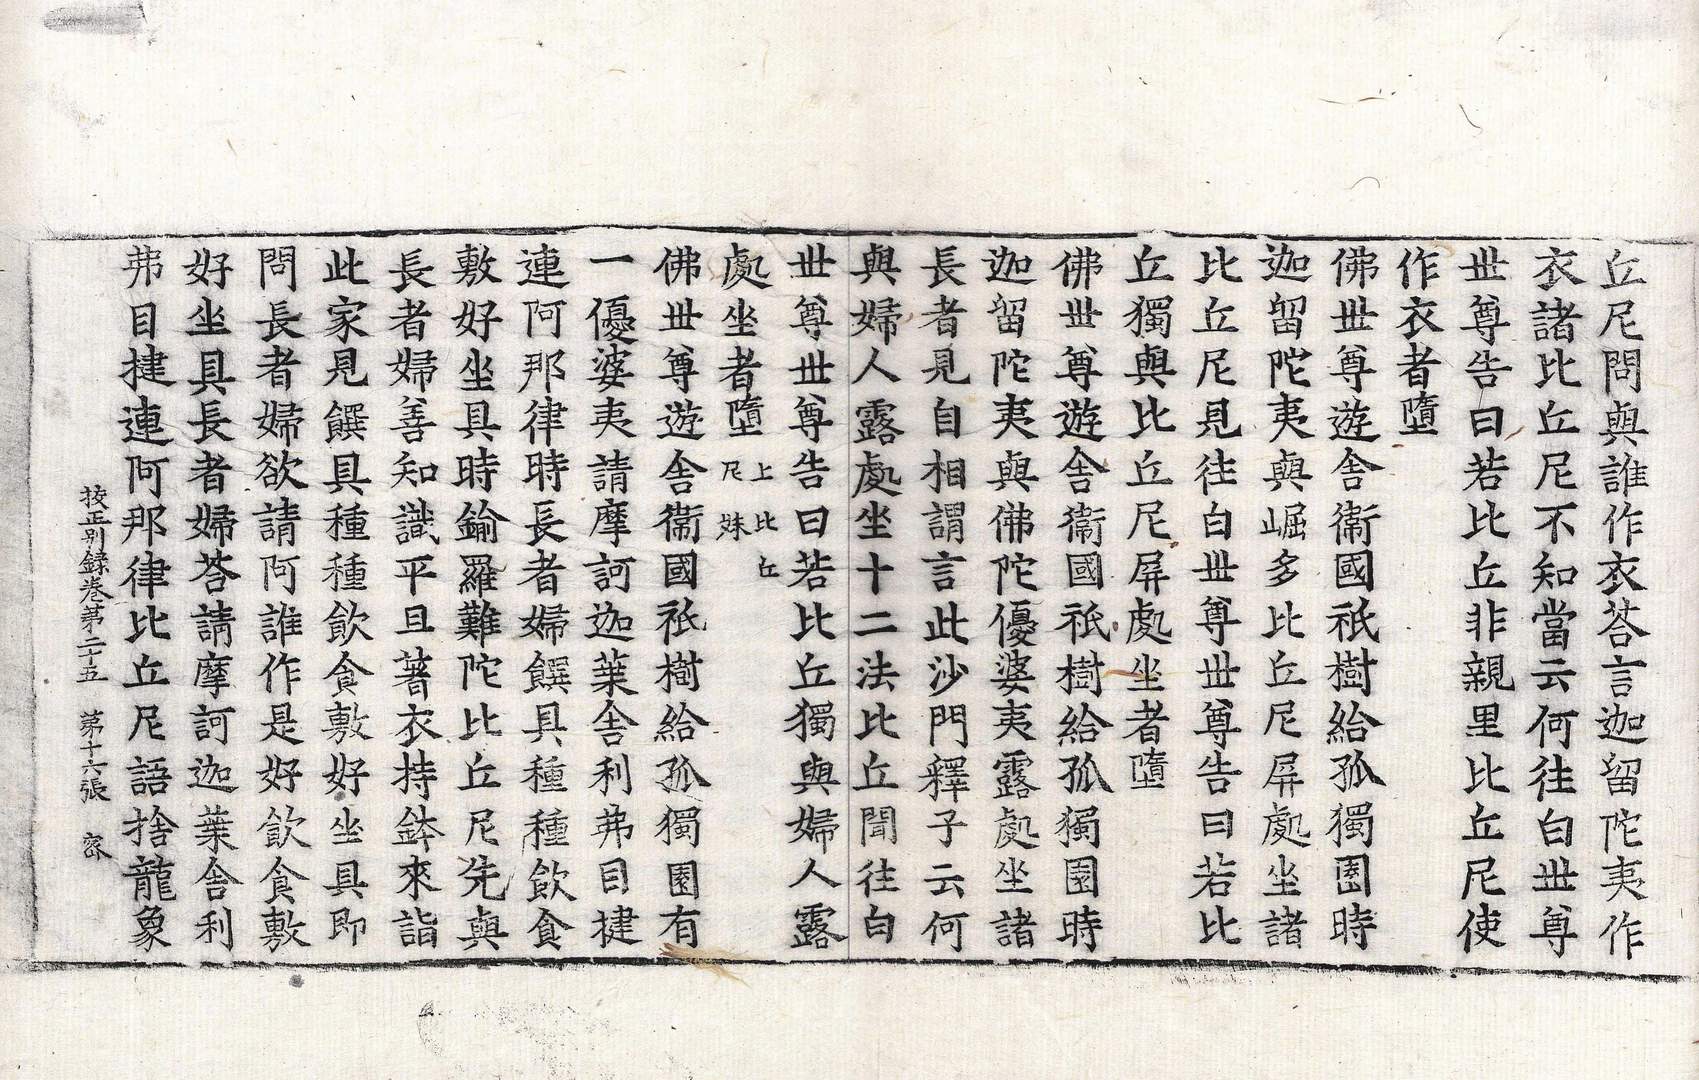 丘尼問與誰作衣荅言迦留陀夷作
衣諸比丘尼不知當云何往白世尊
世尊告曰若比丘非親里比丘尼使
作衣者墮
佛世尊遊舍衛國祇樹給孤獨園時
迦留陀夷與崛多比丘尼屏處坐諸
比丘尼見往白世尊世尊告曰若比
丘獨與比丘尼屏處坐者墮
佛世尊遊舍衛國祇樹給孤獨園時
迦留陀夷與佛陀優婆夷露處坐諸
長者見自相謂言此沙門釋子云何
與婦人露處坐十二法比丘聞往白
世尊世尊告曰若比丘獨與婦人露
處坐者墮上比丘尼妹
佛世尊遊舍衛國祇樹給孤獨園有
一優婆夷請摩訶迦葉舍利弗目揵
連阿那律時長者婦饌具種種飲食
敷好坐具時鍮羅難陀比丘尼先與
長者婦善知識平旦著衣持鉢來詣
此家見饌具種種飲食敷好坐具即
問長者婦欲請阿誰作是好飲食敷
好坐具長者婦荅請摩訶迦葉舍利
弗目揵連阿那律比丘尼語捨龍象
挍正別錄卷第二十五　第十六張　密